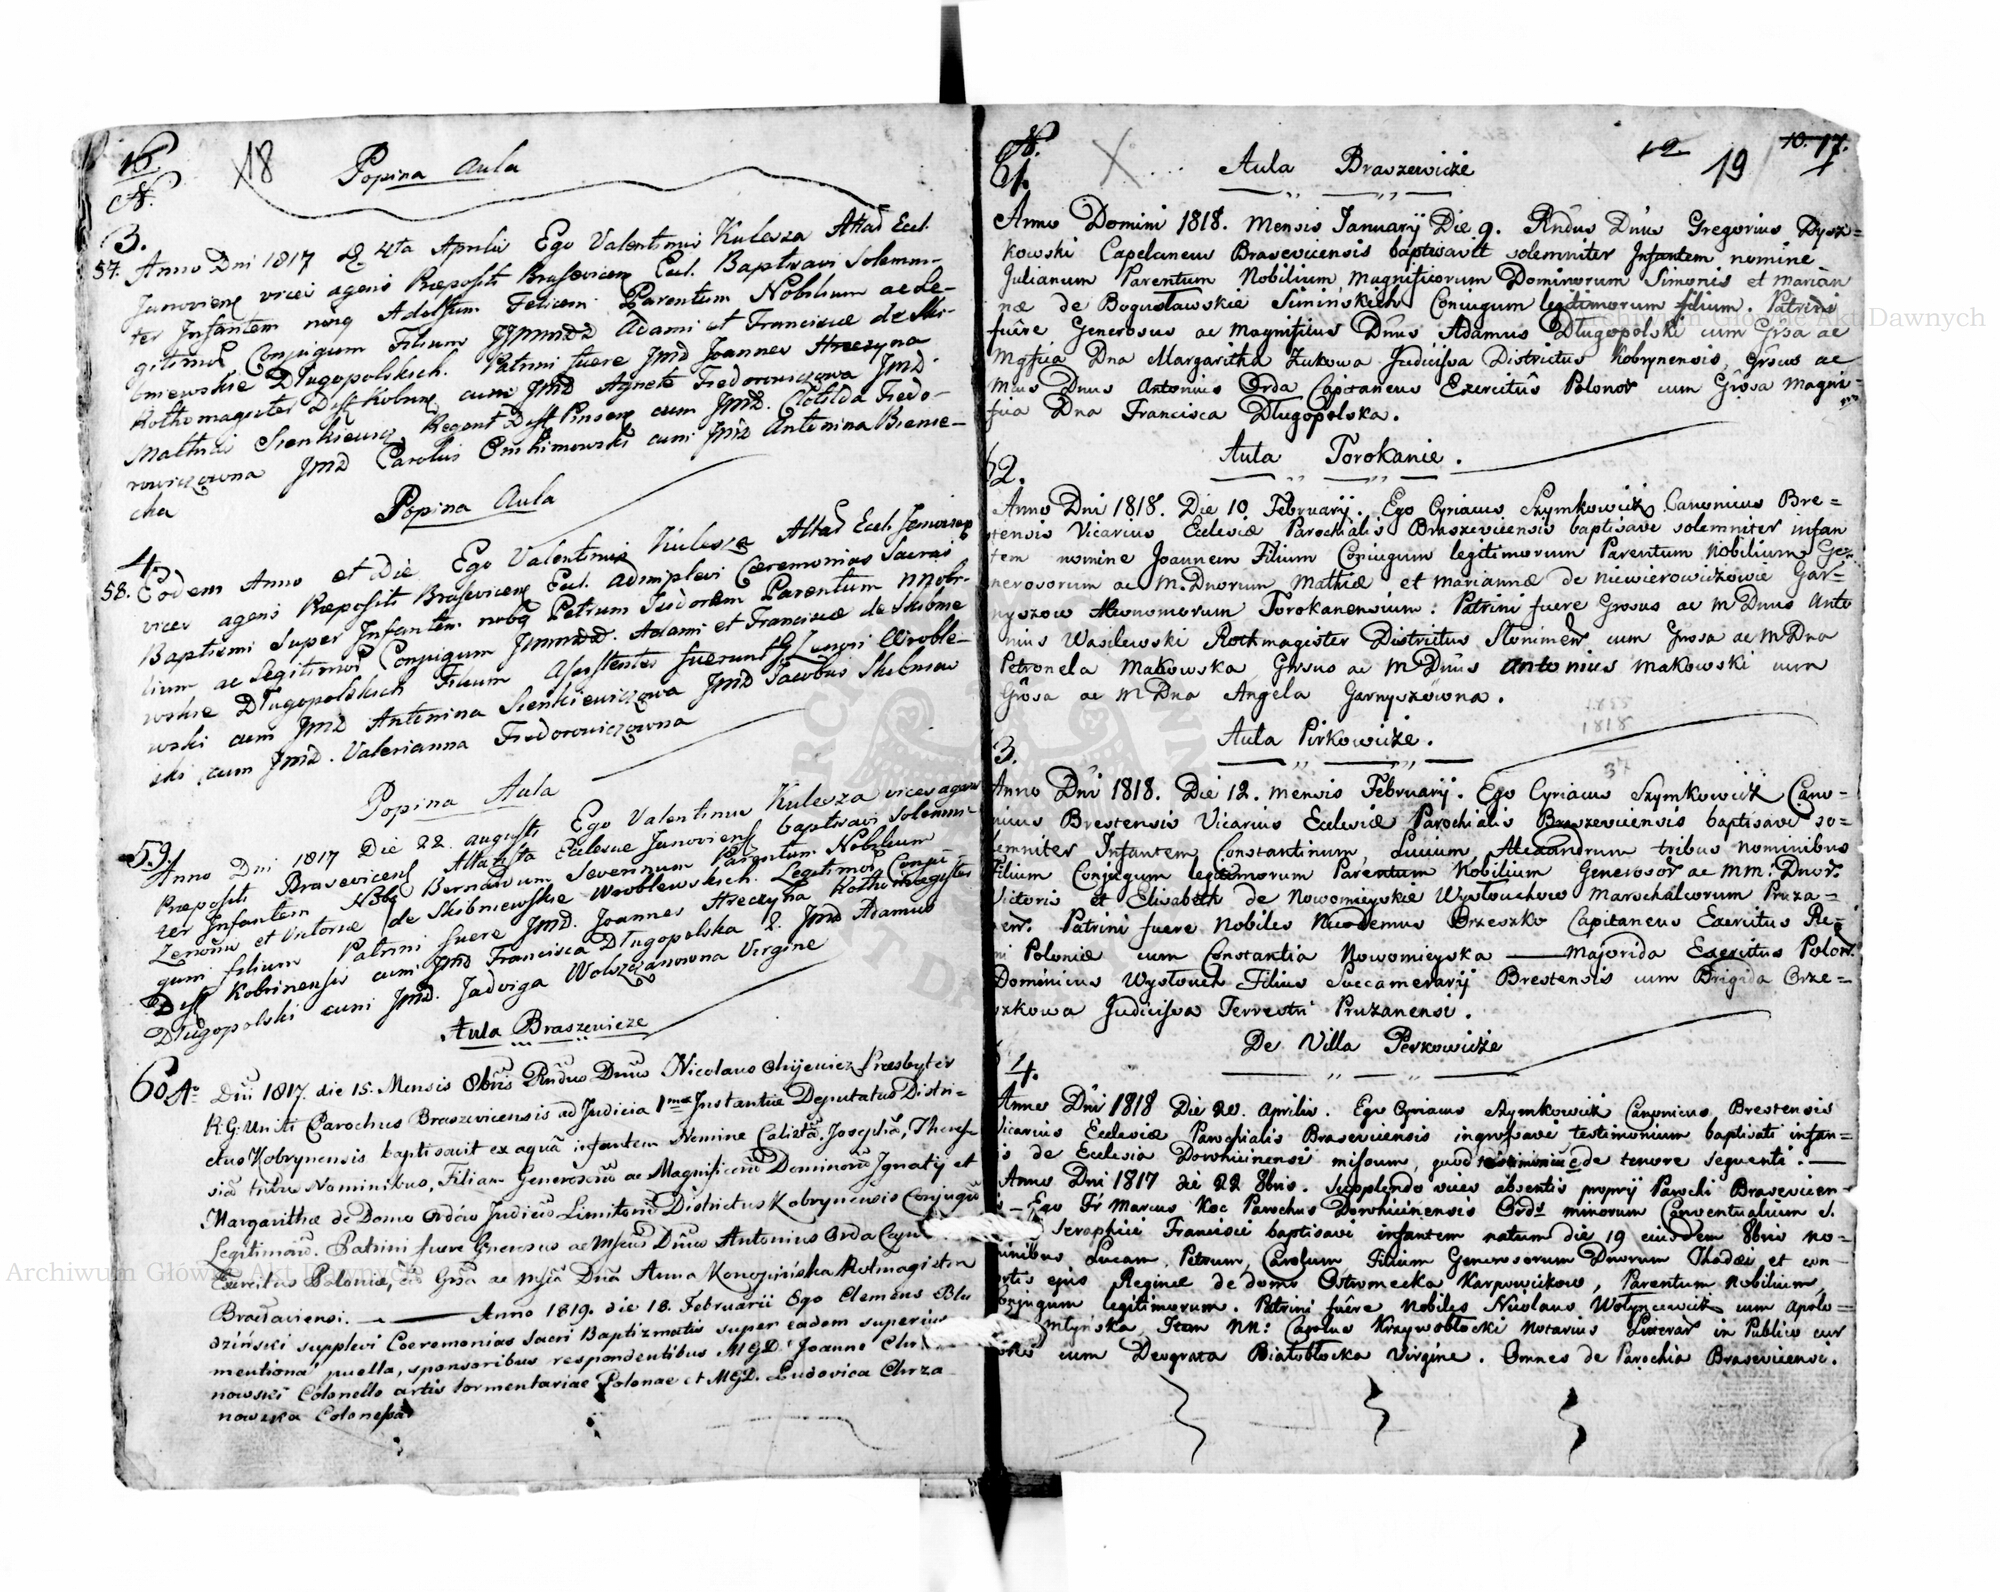 16.
N.
18
Popina Aula
3.
57. Anno Dni 1817 D. 4ta Aprilis Ego Valentinus Kulesza Altar Eccl.
Janovien vices agens Præpositi Brasevicen Eccl. Baptisavi Solemni-
ter Infantem Adolfum Felicem Parentum Nobilium ac le-
gitimor Conjugum Filium Adami et Franciscæ de Ski-
bniewskie Długopolskich. Patrini fuere Joannes Hreczyna
Rothmagister Dystr Kobryn cum JMD Agnete Fiedorowiczowa JMD.
Mathias Sienkiewicz Regent Dystr Pinsen cum JMD. Clotilda Fiedo-
rowiczowna JMD Carolus Onichimowski cum JMD Antonina Bienie-
cka
Popina Aula
4.
58. Eodem Anno et Die Ego Valentinus Kulesza Altar Eccl. Janovien
vices agens Præpositi Brasevicen Eccl. adimplevi Cæremonias Sacras
Baptismi super Infantem Petrum Teodorem Parentum Nnobi-
lium ac Legitimor Conjugum Adami et Franciscæ de Skibnie
wskie Długopolskich Filium Assistentes fuerunt Wroble-
wski cum JMD Antonina Sienkiewiczowa JMD Jacobus Skibniew
ski cum JMD. Valerianna Fiedorowiczowna
Popina Aula
59. Anno Dni 1817 Die 22 augusti Ego Valentinus Kulesza vices agens
Præpositi Brasevicen Altarista Ecclesiæ Janovien baptisavi Solemni-
ter Infantem Bernardum Severinum Parentum Nobilium
Zenonis et Victoriæ de Skibniewskie Wroblewskich Legitimor Conju-
gum filium Patrini fuere JMD. Joannes Hreczyna Rothmagister
Dystr Kobrinensis cum JMD Francisca Długopolska 2. JMD Adamus
Długopolski cum JMD. Jadviga Wolszczanowna Virgine
Aula Braszewicze
60. Ao Dni 1817. die 15. Mensis 8bris Rndus Dnus Nicolaus Presbyter
R: G: Uniti Parochus Braszevicensis ad Judicia 1mæ Instantiæ Deputatus Distri-
ctus Kobrynensis baptisavit ex aquâ infantem Nomine Calixtã, Josephã, Theres-
siã tribus Nominibus, Filiam Generosorũ ac Magnificorũ Dominorũ Ignatij et
Margarithæ de Domo Ordów Judicũ Limitorũ Districtus Kobrynensis Conjugũ
Legitimorũ. Patrini fuere Generosus ac Mficus Dnus Antonius Orda
Exercitus Poloniæ, cum Grsã ac Mficã Dnã Anna Konopińska Rotmagistra
Braslaviensi. — Anno 1819. die 18. Februarii Ego Clemens Blu
dziński supplevi Cœremonias Sacri Baptizmatis super eadem superius
mentionâ puella, sponsoribus respondentibus M.G.D. Joanne Chrza
nowski Colonello artis tormentariae Polonae et M.G.D. Ludovica Chrza
nowska Colonessa
N.
12
19
10. 17.
61.
Aula Braszewicze
Anno Domini 1818. Mensis Januarij Die 9. Rndus Dnus Gregorius Dysz=
kowski Capelanus Brasevicensis baptisavit solemniter Infantem nomine
Julianum Parentum Nobilium, Magnificorum Dominorum Simonis et Marian
næ de Bogusławskie Siminskich Coniugum legitimorum filium. Patrini
fuêre Generosus ac Magnificus Dnus Adamus Długopolski cum Grsa ac
Mgfica Dna Margaritha Żukowa Judicissa Districtus Kobrynensis, Grsus ac
Mcus Dnus Antonius Orda Capitaneus Exercitûs Polonor cum Grôsa Magni-
fica Dna Francisca Długopolska.
62.
Aula Torokanie.
Anno Dni 1818. Die 10 Februarij. Ego Cyriacus Szymkowicz Canonicus Bre=
stensis Vicarius Ecclesiæ Parochialis Braszevicensis baptisavi solemniter infan
tem nomine Joannem Filium Coniugum legitimorum Parentum Nobilium Ge=
nerosorum ac M. Dnorum Mathiæ et Mariannæ de Niewierowiczowie Gar=
nyszow Torokanensium: Patrini fuere Grosus ac M Dnus Anto
nius Wasilewski Rothmagister Districtus Słonimen cum Grosa ac M Dna
Petronela Makowska, Grsus ac M Dnus Antonius Makowski cum
Grôsa ac M Dna Angela Garnyszówna.
1855
1818
37
3.
Aula Pirkowicze.
Anno Dni 1818. Die 12. Mensis Februarij. Ego Cyriacus Szymkowicz Cano-
nicus Brestensis Vicarius Ecclesiæ Parochialis Braszevicensis baptisavi so=
lemniter Infantem Constantinum, Lucium, Alexandrum tribus nominibus
Filium Conjugum legitimorum Parentum Nobilium Generosor ac MM: Dnor.
Victoris et Elisabeth de Nowomieyskie Wysłouchow Marschalcorum Pruza-
nen. Patrini fuere Nobiles Nicodemus Brzeszko Capitaneus Exercitus Re=
ni Poloniæ cum Constantia Nowomieyska — Majorida Exercitus Polon.
Dominicus Wysłouch Filius Succamerarij Brestensis cum Brigida Orze=
szkowa Judicissa Terrestri Pruzanensi.
De Villa Perkowicze
4.
Anno Dni 1818 Die 20. Aprilis. Ego Cyriacus Szymkowicz Canonicus Brestensis
Vicarius Ecclesiæ Parochialis Brasevicensis ingrossavi testimonium baptisati infan=
is de Ecclesia Dorohicinensi missum, quod testimonium de tenore sequenti. —
Anno Dni 1817 die 22 8bris. Supplendo vices absentis proprij Parochi Brasevicen
Ego Fr Marcus Koc Parochus Dorohicinensis Ords minorum Conventualium S.
Seraphici Francisci baptisavi infantem natum die 19 eiusdem 8bris no-
minibus Lucam, Petrum, Carolum, Filium Generosorum Dnorum Thadæi et con-
sortis ejus Reginæ de domo Ostromecka Karpowiczow, Parentum Nobilium,
Conjugum legitimorum. Patrini fuêre Nobiles Nicolaus Wołyncewicz cum Apolo=
młyńska, Item NN: Carolus Krzywobłocki Notarius in Publico cur
cum Deograta Białobłocka Virgine. Omnes de Parochia Brasevicensi.
Archiwum Główne Akt Dawnych
Archiwum Główne Akt Dawnych